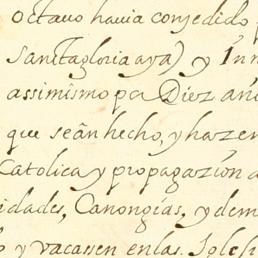 octauo hauia conzedido
Santa gloria aya) y Inn
assimismo por Diez añ
que seân hecho, y hazen
Catolica y propagazión
idades, Canongías, y dem
y vacassen en las Igles